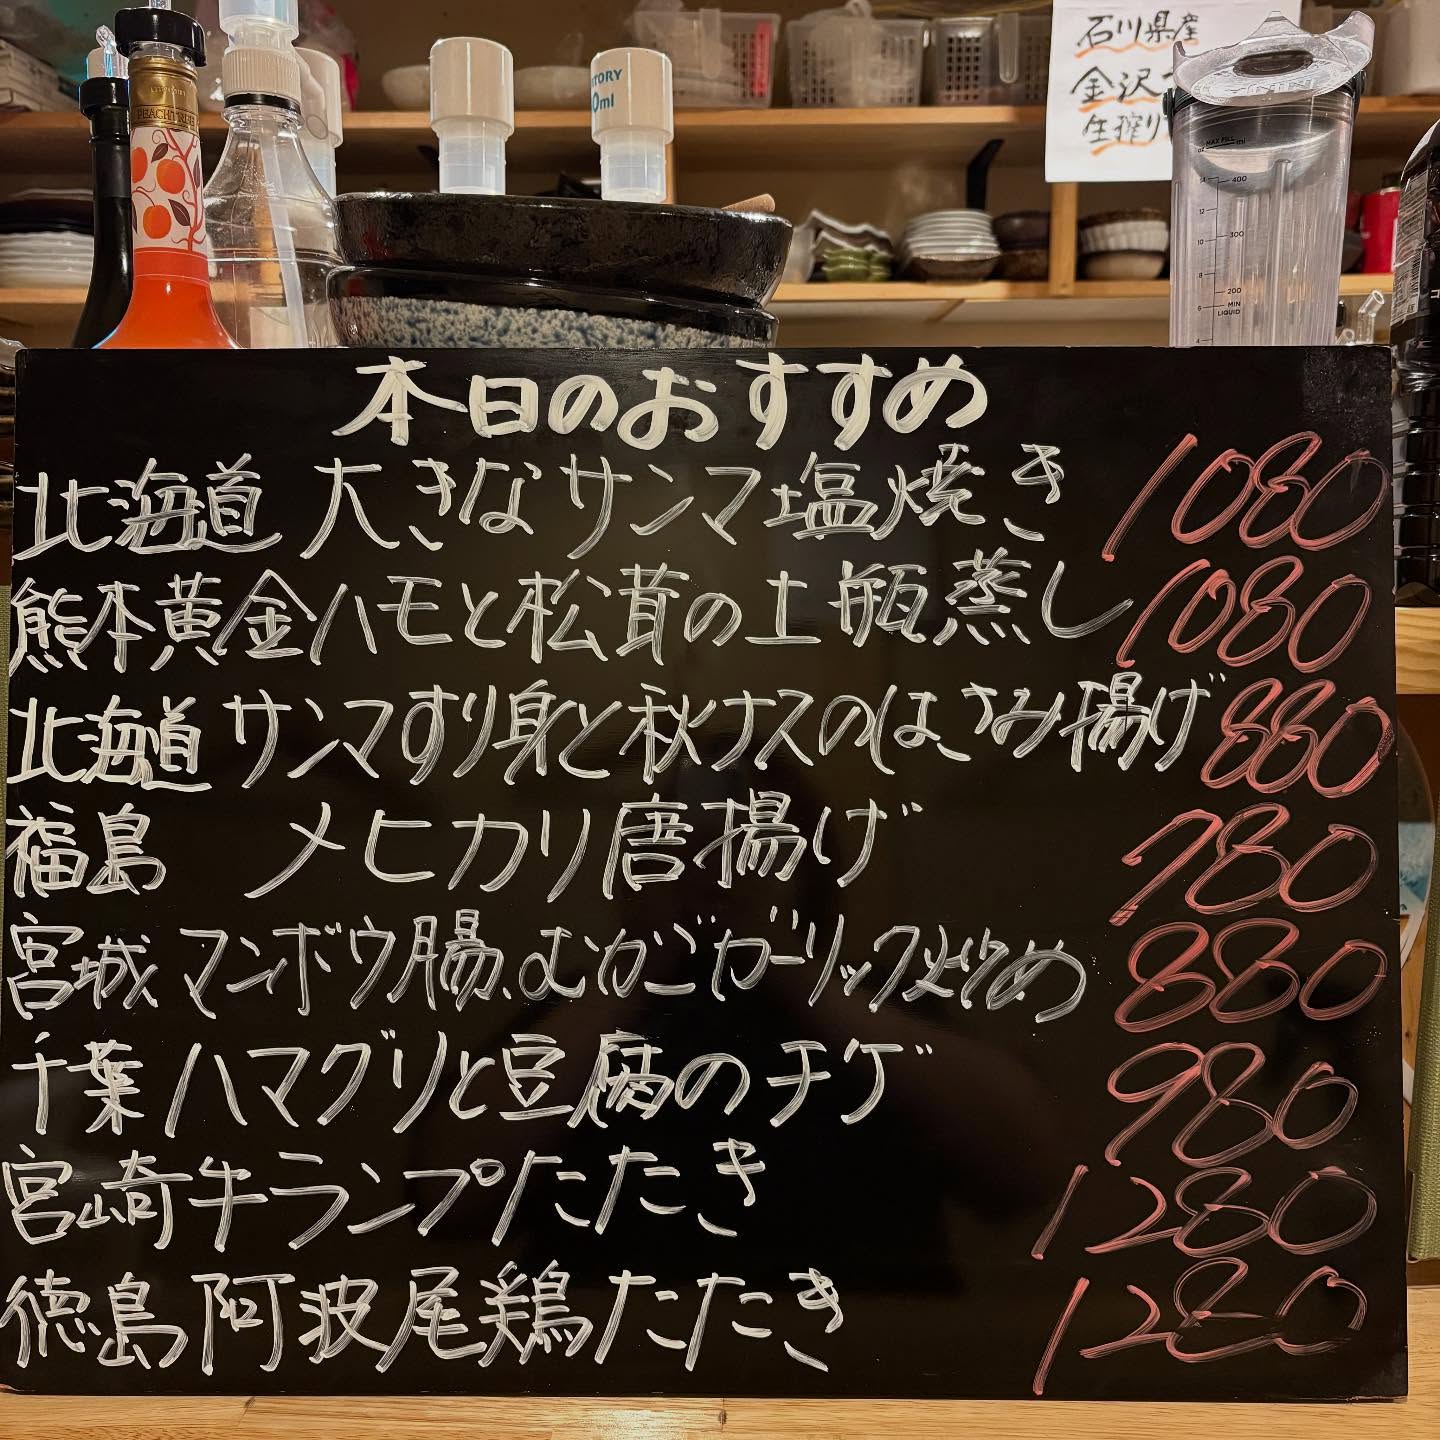 石川県産
金沢
生搾り
TORY
0ml
PEACHTREE
MAX FILL
oz ml
14 400
12
10 300
8
200
6 MIN
LIQUID
4
本日のおすすめ
北海道 大きなサンマ塩焼き 1080
熊本黄金ハモと松茸の土瓶蒸し 1080
北海道 サンマすり身と秋ナスのはさみ揚げ 880
福島 メヒカリ唐揚げ 780
宮城 マンボウ腸、むかごガーリック炒め 880
千葉 ハマグリと豆腐のチゲ 980
宮崎牛ランプたたき 1280
徳島 阿波尾鶏たたき 1280